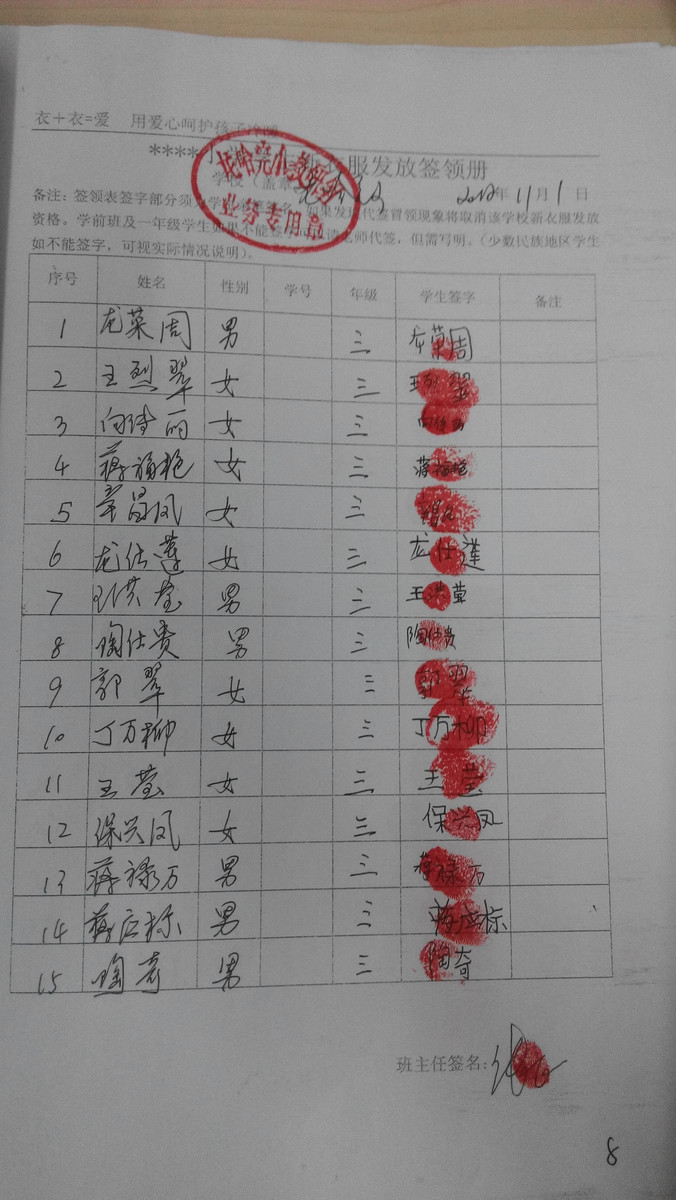 衣+衣=爱 用爱心呵护孩子冷暖
****小学 衣服发放签领册
托哈完小教导处
业务专用章
学校（盖章 2012年11月1日
备注：签领表签字部分须 学 签名，如果发现代签冒领现象将取消该学校新衣服发放
资格。学前班及一年级学生如果不能签字可以 读老师代签，但需写明。（少数民族地区学生
如不能签字，可视实际情况说明）。
序号 姓名 性别 学号 年级 学生签字 备注
1 龙菜周 男 三 龙菜周
2 王烈翠 女 三 王烈翠
3 向诗丽 女 三
4 蒋福艳 女 三 蒋福艳
5 章昌凤 女 三
6 龙仕莲 女 三 龙仕莲
7 王洪莹 男 三 王洪莹
8 陶仕贵 男 三 陶仕贵
9 郭翠 女 三 郭翠
10 丁万柳 女 三 丁万柳
11 王莹 女 三 王莹
12 保兴凤 女 三 保兴凤
13 蒋禄万 男 三 蒋禄万
14 蒋应标 男 三 蒋应标
15 陶奇 男 三 陶奇
班主任签名：
8